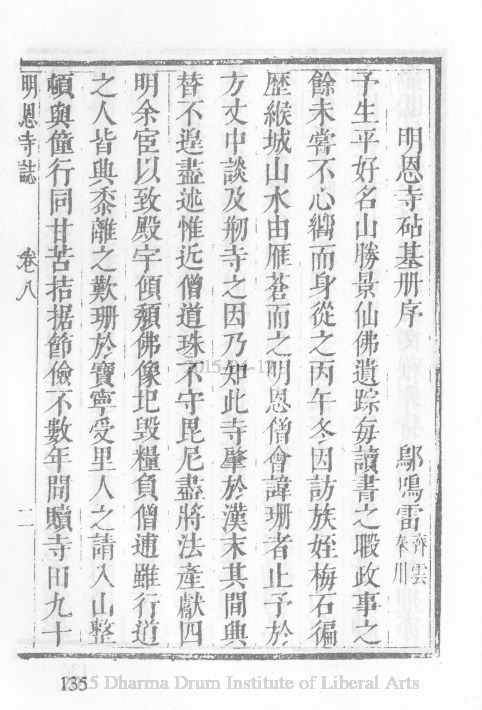 明恩寺砧基册序 鄔鳴雷齊雲奉川
予生平好名山勝景仙佛遺踪每讀書之暇政事之
餘未嘗不心嚮而身從之丙午冬因訪族姪梅石徧
歷緱城山水由雁蒼而之明恩僧會諱珊者止予於
方丈中談及剏寺之因乃知此寺肇於漢末其間興
替不遑盡述惟近僧道珠不守毘尼盡將法產獻四
明余宦以致殿宇傾頽佛像圮毀糧負僧逋雖行道
之人皆興黍離之歎珊於寶寧受里人之請入山整
頓與僮行同甘苦拮据節儉不數年間贖寺田九十
明恩寺誌 卷八 二
2015-01-17
135
2015 Dharma Drum Institute of Liberal Arts